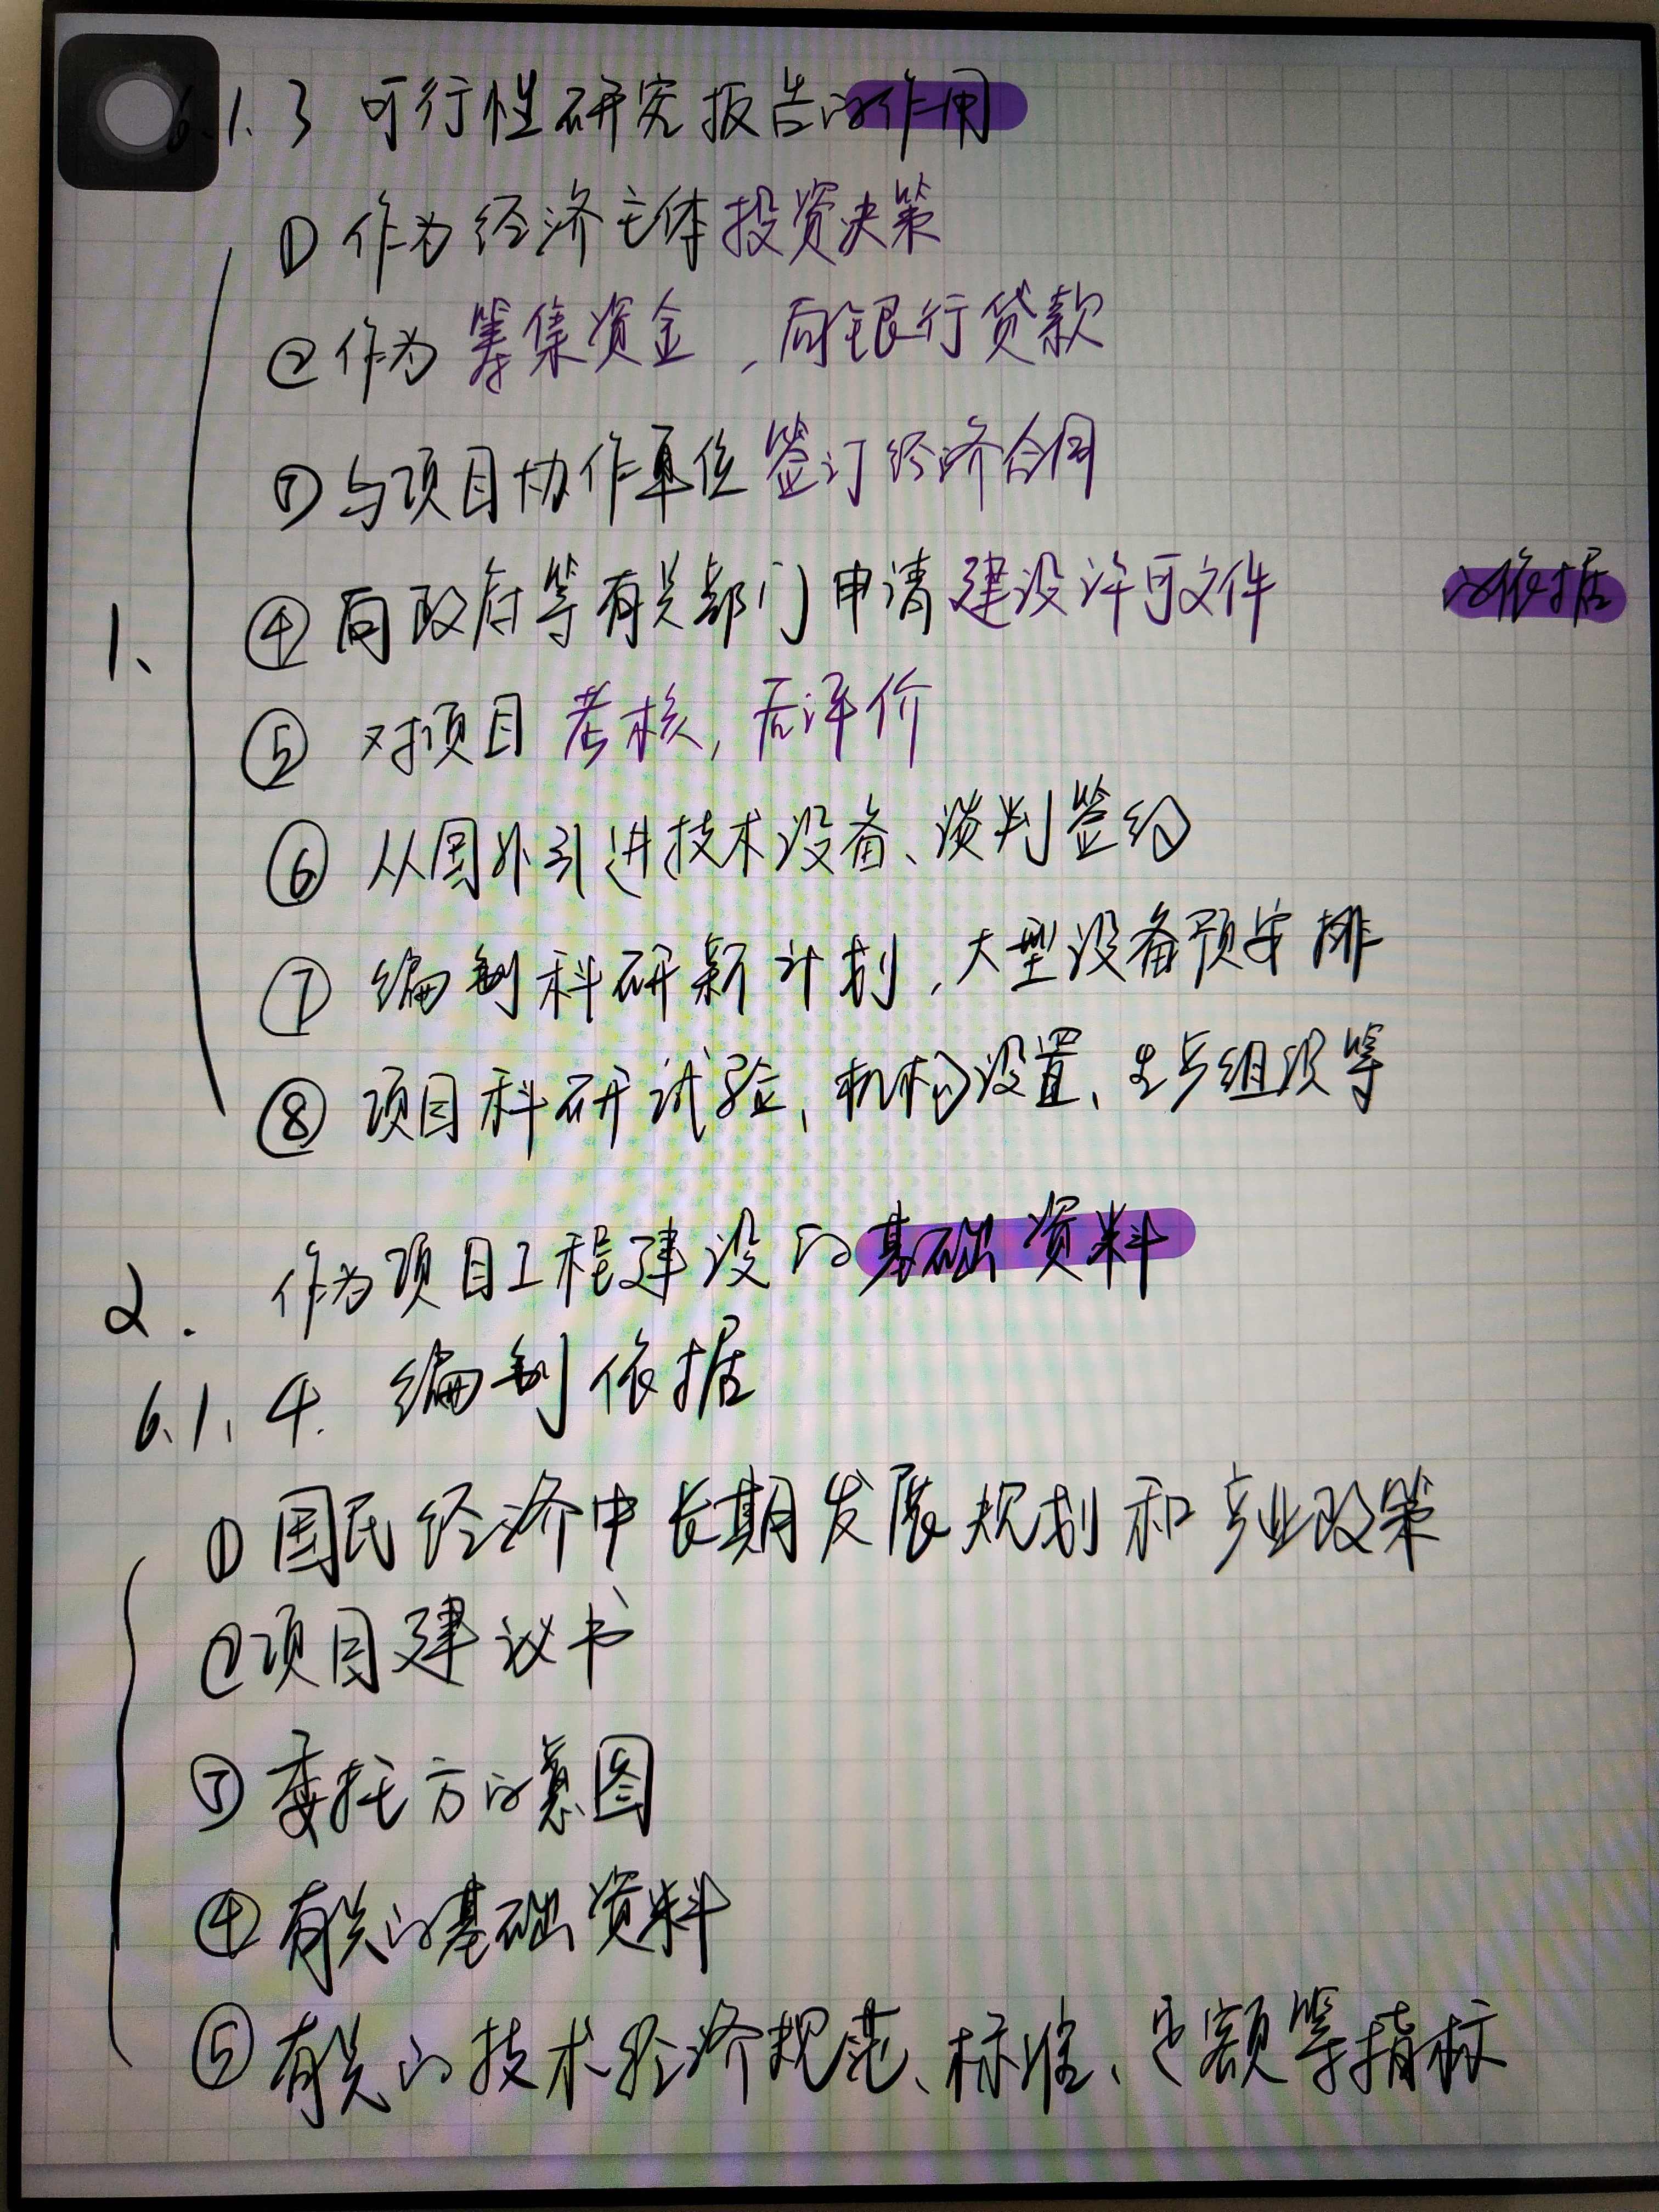 6.1.3 可行性研究报告的作用
① 作为经济主体投资决策
② 作为筹集资金,向银行贷款
③ 与项目协作单位签订经济合同
④ 向政府等有关部门申请建设许可文件 的依据
1、
⑤ 对项目考核,后评价
⑥ 从国外引进技术设备、谈判签约
⑦ 编制科研新计划,大型设备预安排
⑧ 项目科研试验、机构设置、生产组织等
2. 作为项目工程建设的基础资料
6.1.4. 编制依据
① 国民经济中长期发展规划和产业政策
② 项目建议书
③ 委托方的意图
④ 有关的基础资料
⑤ 有关的技术经济规范、标准、定额等指标